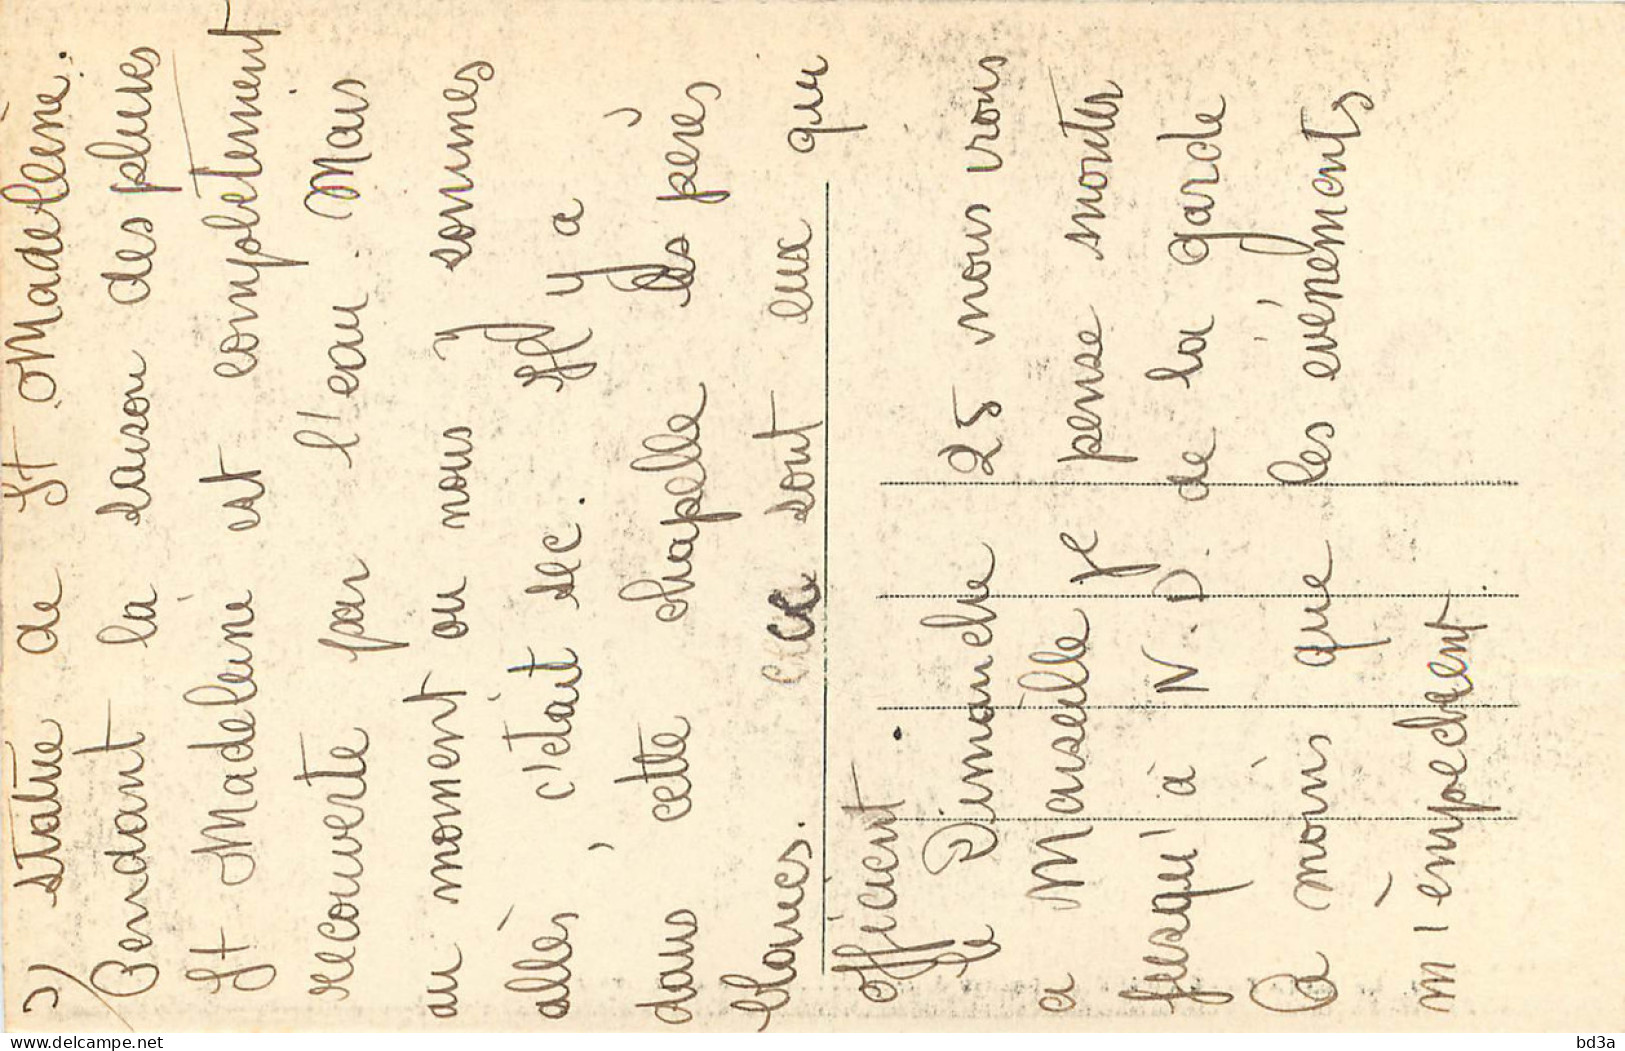 2) Statue de St Madeleine.
Pendant la saison des pluies
St Madeleine est complètement
recouverte par l'eau. Mais
au moment ou nous y sommes
allés, c'était sec. Il y a
dans cette chapelle les pères
blancs. ce sont eux qui
officient.
Le Dimanche 25 nous irons
a Marseille je pense monter
jusqu'à N.D. de la Garde
A moins que les événements
m'empêchent.
www.delcampe.net
bd3a